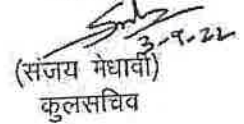 3-9-22
(संजय मेधावी)
कुलसचिव